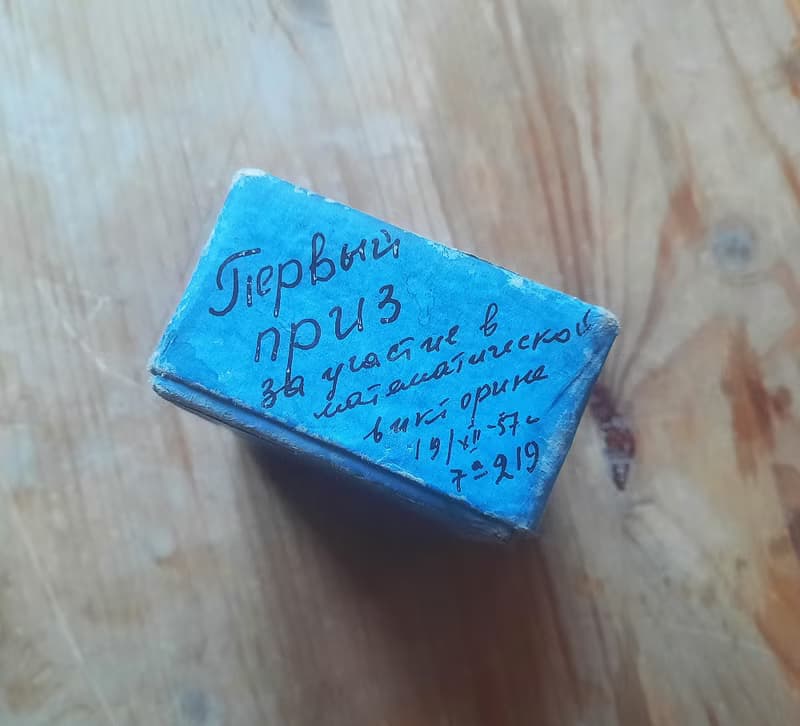 Первый
приз
за участие в
математической
викторине
19/XII-57г
7а 219